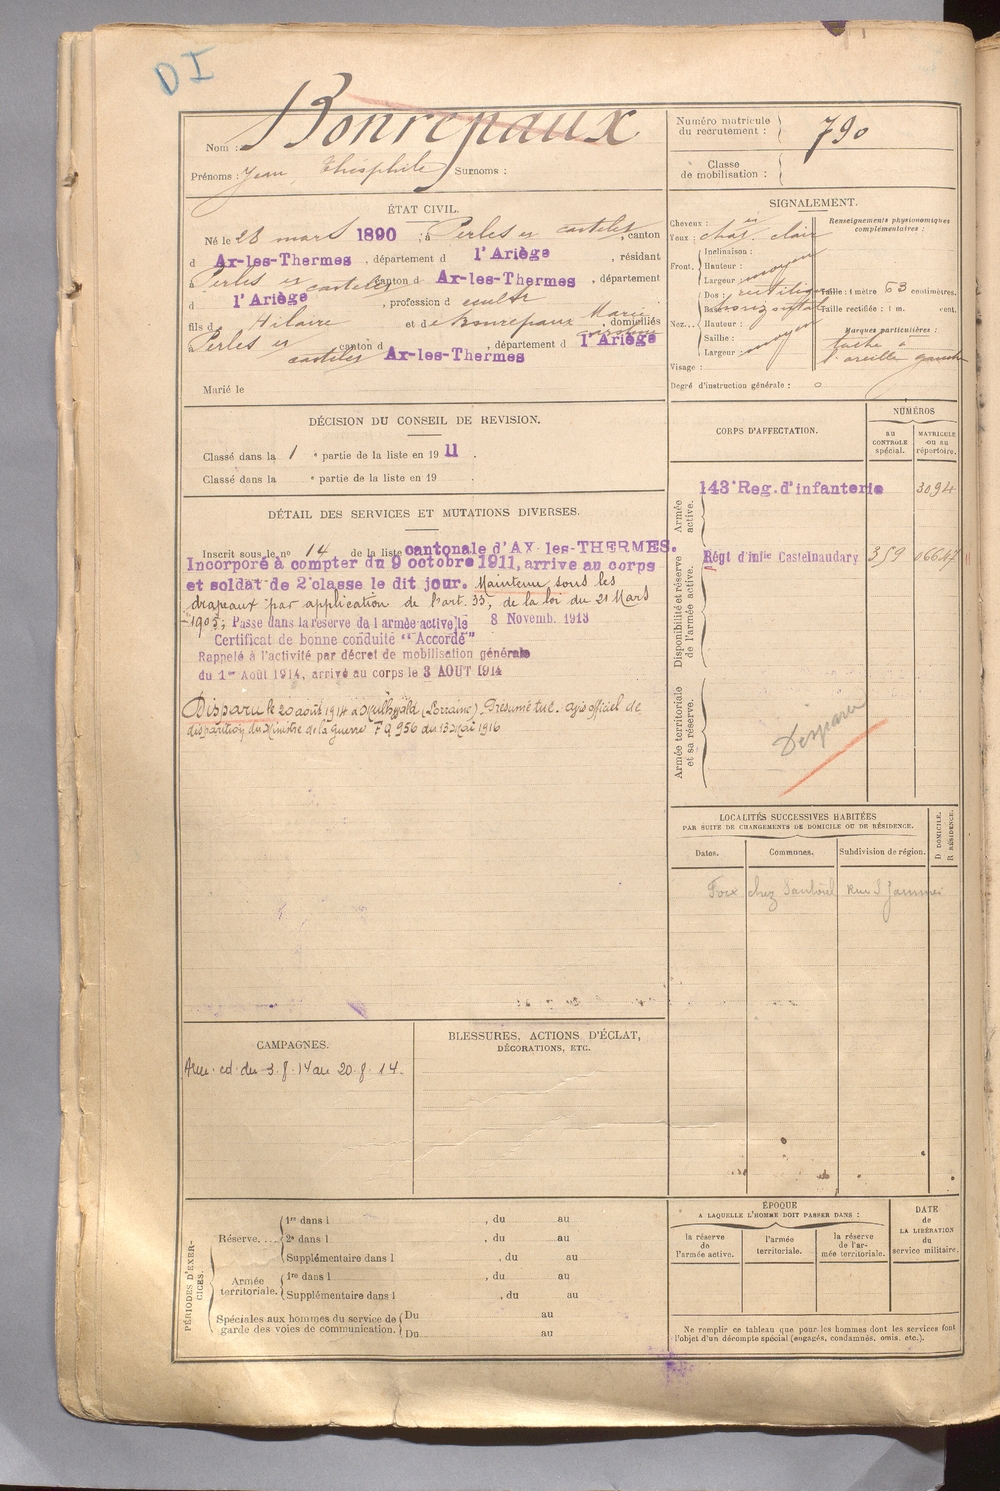 DI
Nom : Bonrepaux
Prénoms : Jean Théophile Surnoms :
Numéro matricule du recrutement : 790
Classe de mobilisation :
ÉTAT CIVIL.
Né le 28 mars 1890, à Perles et castelet, canton
d Ax-les-Thermes, département d l'Ariège, résidant
Perles et castelet canton d Ax-les-Thermes, département
d l'Ariège, profession d cultr
fils d Hilaire et de Bonrepaux Marie, domiciliés
à Perles et castelet canton d Ax-les-Thermes, département d l'Ariège
Marié le
SIGNALEMENT.
Cheveux : chat
Yeux : clair
Front. Inclinaison :
Hauteur :
Largeur : moyen
Nez. Dos : rectiligne
Base horizontal
Hauteur :
Saillie :
Largeur : moyen
Visage :
Renseignements physionomiques complémentaires :
Taille : 1 mètre 63 centimètres.
Taille rectifiée : 1 m. cent.
Marques particulières :
tache à
l'oreille gauche
Degré d'instruction générale : 0
DÉCISION DU CONSEIL DE REVISION.
Classé dans la 1e partie de la liste en 1911.
Classé dans la e partie de la liste en 19 .
DÉTAIL DES SERVICES ET MUTATIONS DIVERSES.
Inscrit sous le no 14 de la liste cantonale d'AX-les-THERMES.
Incorporé à compter du 9 octobre 1911, arrive au corps
et soldat de 2e classe le dit jour. Maintenu sous les
drapeaux par application de l'art. 33, de la loi du 21 Mars
1905; Passé dans la réserve de l'armée active le 8 Novemb. 1913
Certificat de bonne conduite "Accordé"
Rappelé à l'activité par décret de mobilisation générale
du 1er Août 1914, arrivé au corps le 3 AOUT 1914
Disparu le 20 août 1914 à (Lorraine). Présumé tué. avis officiel de
disparition du Ministre de la guerre 956 du 13 Mai 1916
CORPS D'AFFECTATION.
NUMÉROS
AU CONTROLE spécial.
MATRICULE ou au répertoire.
Armée active.
143e Reg. d'infanterie 3094
Disponibilité et réserve de l'armée active.
Régt d'inf​ie Castelnaudary 359 06647
Armée territoriale et sa réserve.
Disparu
LOCALITÉS SUCCESSIVES HABITÉES
PAR SUITE DE CHANGEMENTS DE DOMICILE OU DE RÉSIDENCE.
Dates. Communes. Subdivision de région. D DOMICILE. R RÉSIDENCE.
Foix chez Rue
CAMPAGNES.
du 3.8.14 au 20.8.14.
BLESSURES, ACTIONS D'ÉCLAT,
DÉCORATIONS, ETC.
PÉRIODES D'EXERCICES.
Réserve.... 1re dans l , du au
2e dans l , du au
Supplémentaire dans l , du au
Armée territoriale. 1re dans l , du au
Supplémentaire dans l , du au
Spéciales aux hommes du service de garde des voies de communication. Du au
Du au
ÉPOQUE
A LAQUELLE L'HOMME DOIT PASSER DANS :
la réserve de l'armée active.
l'armée territoriale.
la réserve de l'armée territoriale.
DATE de LA LIBÉRATION du service militaire.
Ne remplir ce tableau que pour les hommes dont les services font
l'objet d'un décompte spécial (engagés, condamnés, omis, etc.).